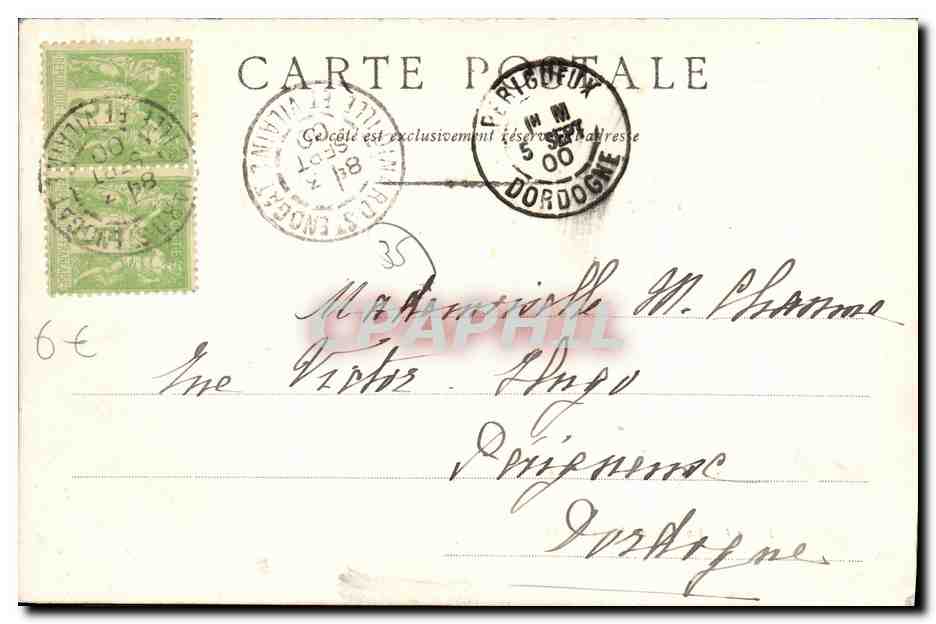 CARTE POSTALE
Ce côté est exclusivement réservé à l'adresse
DINARD ST ENOGAT
ILLE ET VILAINE
SEPT
00
PERIGUEUX
1E M
5 SEPT
00
DORDOGNE
35
Mademoiselle M. Chaume
CPAPHIL
Rue Victor Hugo
6€
Périgueux
Dordogne